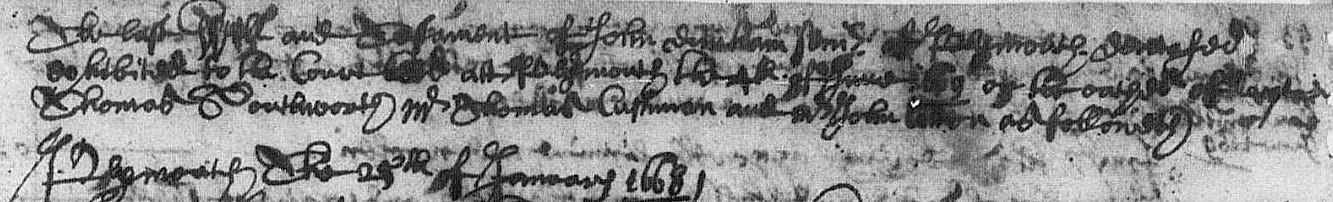 The last Will and Testament of John Dunham senir: of Plymouth deceased
exhibited to the Court held att Plymouth the 4th of June 1669 on the oathes of Captaine
Thomas Southworth mr Thomas Cushman and mr John Cotton as followeth
Plymouth The 25th of January 1668